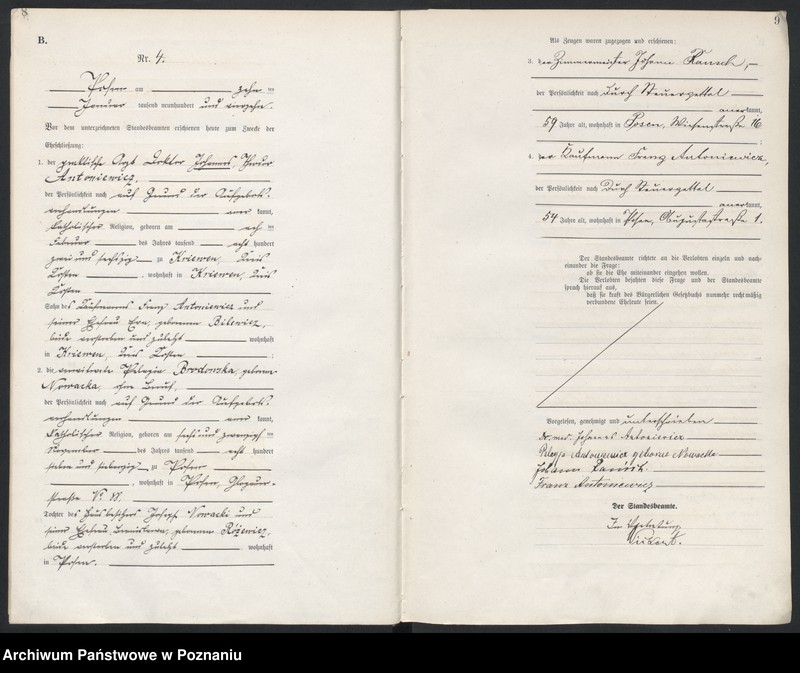 8
B.
Nr. 4.
Posen am zehn ten
Januar tausend neunhundert und vierzehn.
Vor dem unterzeichneten Standesbeamten erschienen heute zum Zwecke der
Eheschließung:
1. der praktische Arzt Doktor Johannes Theodor
Antoniewicz,
der Persönlichkeit nach auf Grund der Aufgebots-
verhandlungen aner kannt,
katholischer Religion, geboren am ten
Februar des Jahres tausend acht hundert
zwei und sechszig zu Kriewen, Kreis
Kosten, wohnhaft in Kriewen, Kreis
Kosten
Sohn des Kaufmanns Franz Antoniewicz und
seiner Ehefrau Eva, geborenen Bilewicz,
beide verstorben und zuletzt wohnhaft
in Kriewen, Kreis Kosten ;
2. die verwitwete Pelagia Brodowska, geborene
Nowacka, ohne Beruf,
der Persönlichkeit nach auf Grund der Aufgebots-
verhandlungen aner kannt,
katholischer Religion, geboren am sechs und zwanzigsten
November des Jahres tausend acht hundert
sieben und siebenzig zu Posen
, wohnhaft in Posen, Glogauer-
straße No.
Tochter des Hausbesitzers Joseph Nowacki und
seiner Ehefrau geborenen Różewicz,
beide verstorben und zuletzt wohnhaft
in Posen.
9
Als Zeugen waren zugezogen und erschienen:
3. der Zimmermeister Johann Rausch,
der Persönlichkeit nach durch Steuerzettel
anerkannt,
59 Jahre alt, wohnhaft in Posen, Wiesenstraße 16
;
4. der Kaufmann Franz Antoniewicz,
der Persönlichkeit nach durch Steuerzettel
anerkannt,
54 Jahre alt, wohnhaft in Posen, Augustastraße 1.
Der Standesbeamte richtete an die Verlobten einzeln und nach-
einander die Frage:
ob sie die Ehe miteinander eingehen wollen.
Die Verlobten bejahten diese Frage und der Standesbeamte
sprach hierauf aus,
daß sie kraft des Bürgerlichen Gesetzbuchs nunmehr rechtmäßig
verbundene Eheleute seien.
Vorgelesen, genehmigt und unterschrieben
Dr. med. Johannes Antoniewicz
Pelagja Antoniewicz geborene Nowacka
Johann
Franz Antoniewicz
Der Standesbeamte.
In Vertretung
Archiwum Państwowe w Poznaniu